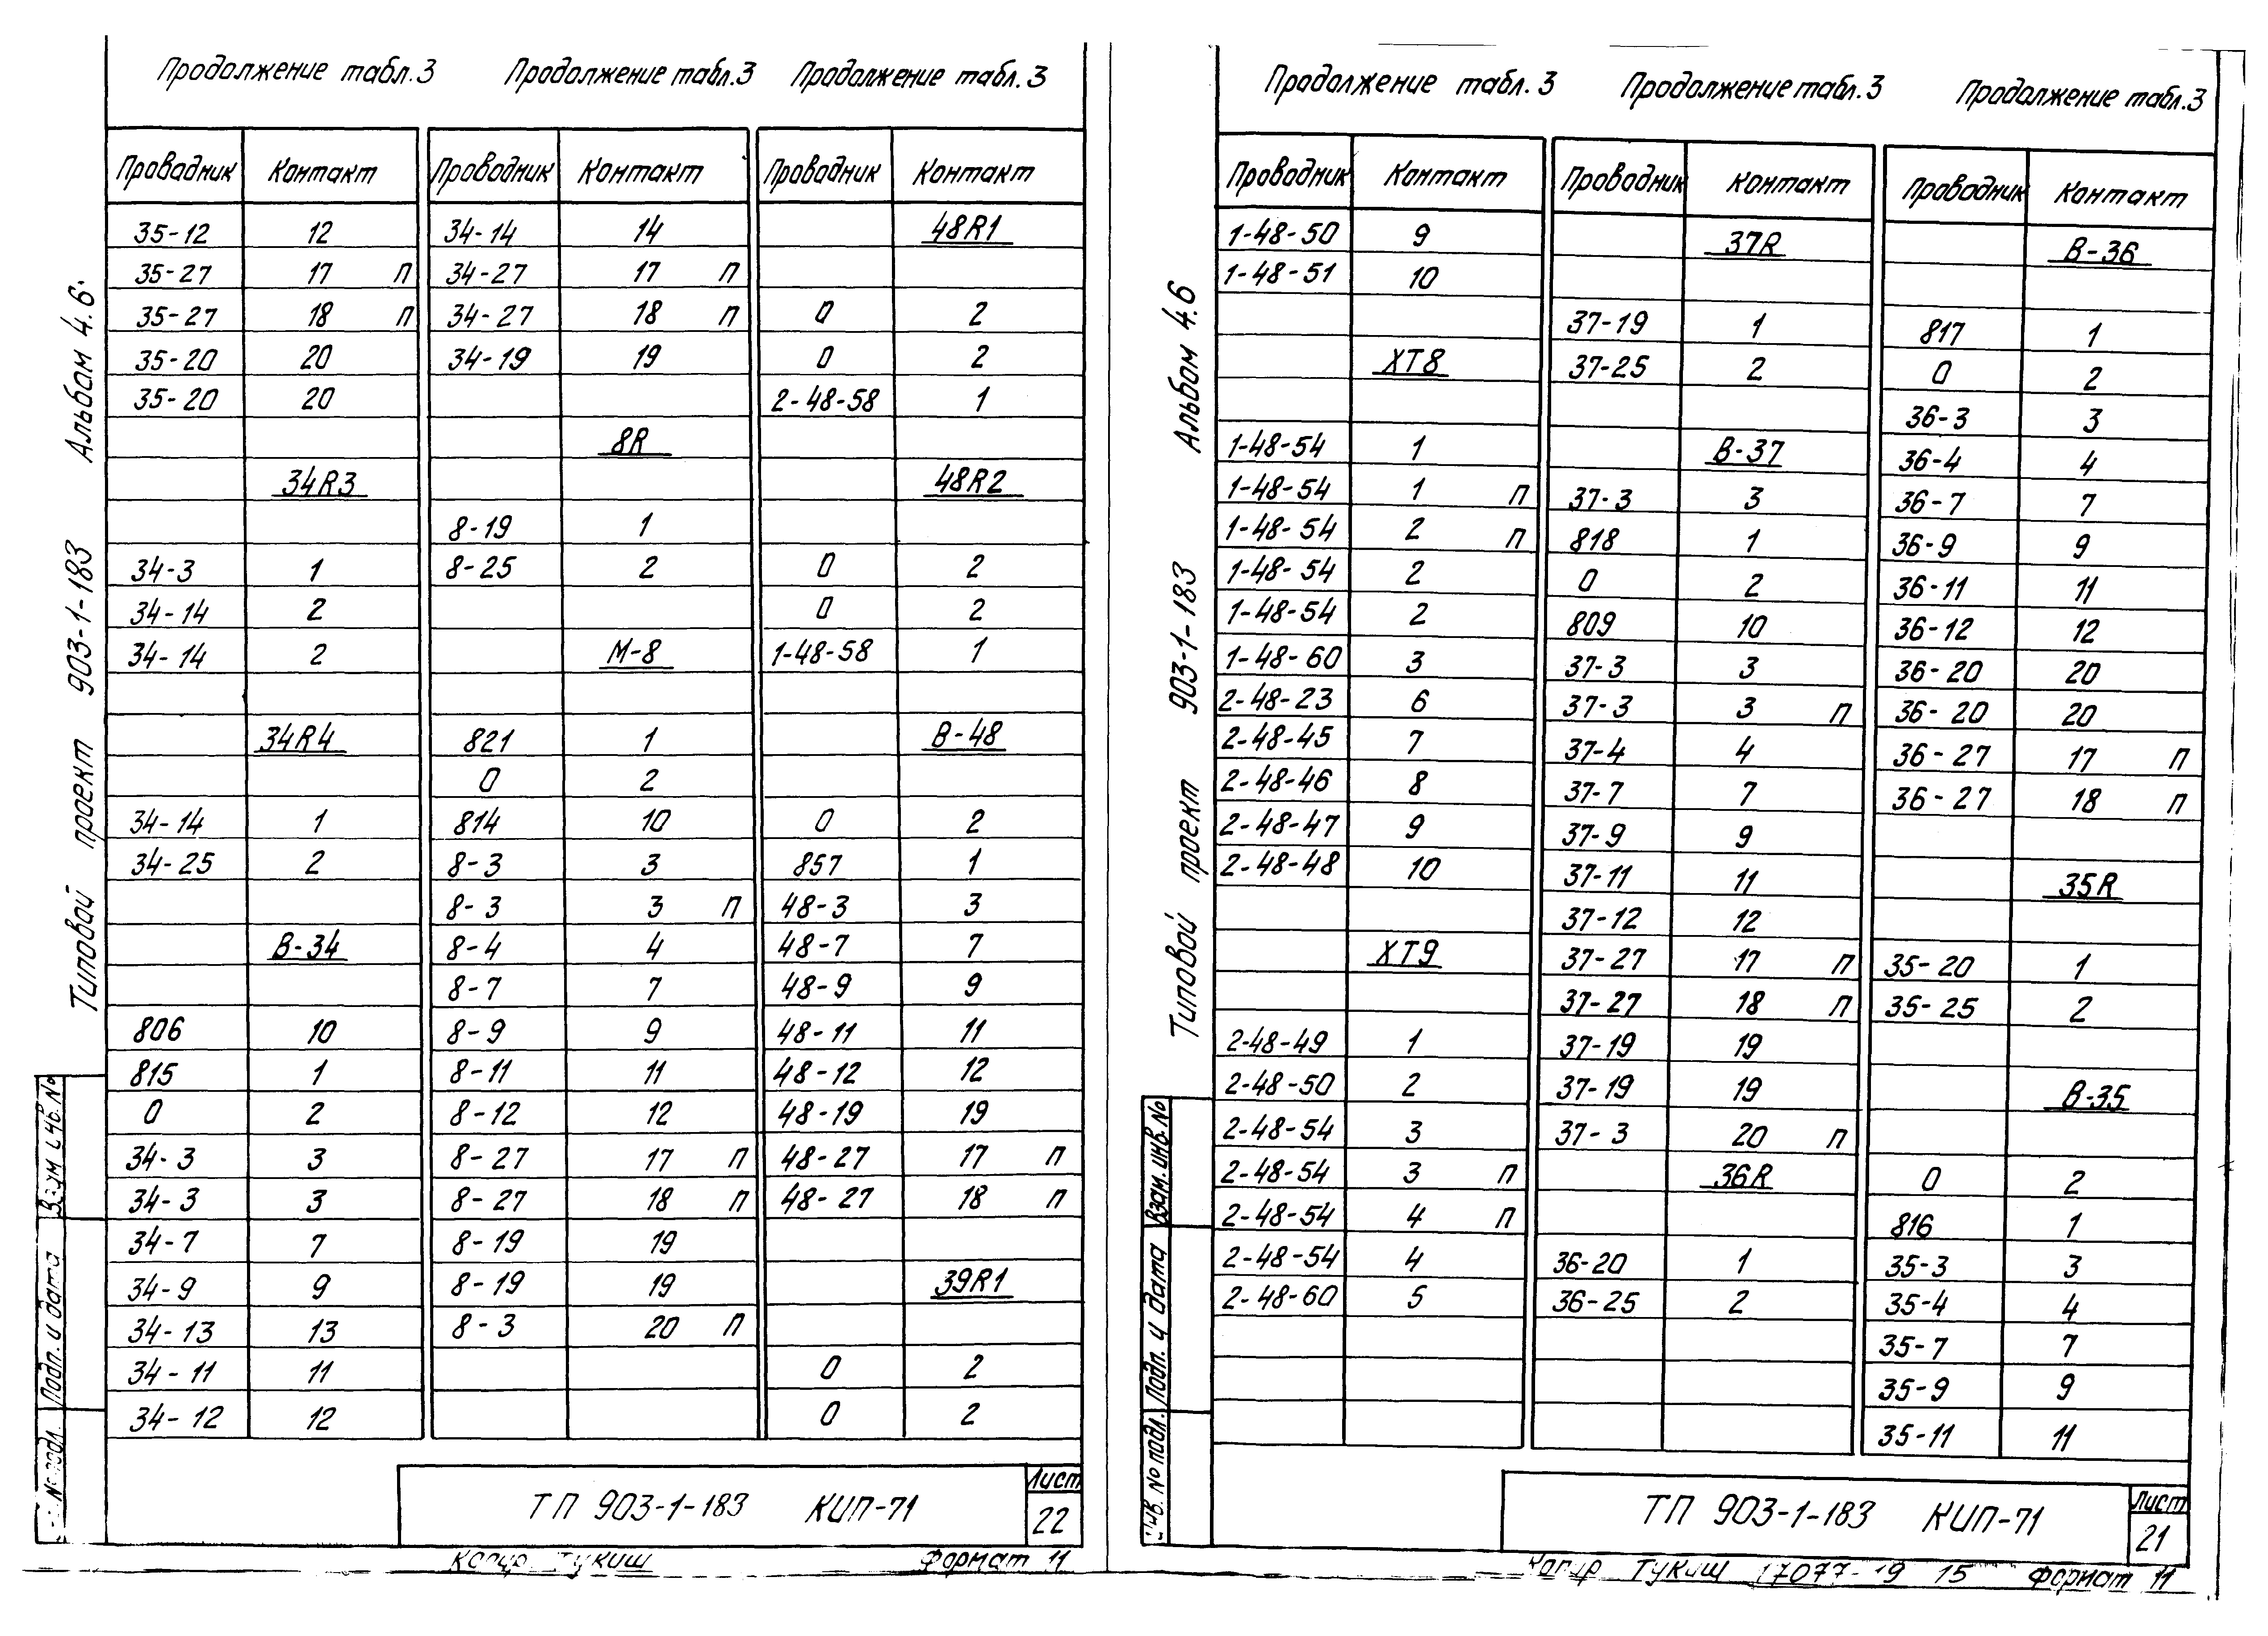 Продолжение табл.3 Продолжение табл.3 Продолжение табл.3
Проводник Контакт Проводник Контакт Проводник Контакт
35-12 12 34-14 14 48R1
35-27 17 П 34-27 17 П
35-27 18 П 34-27 18 П 0 2
35-20 20 34-19 19 0 2
35-20 20 2-48-58 1
8R
34R3 48R2
8-19 1
34-3 1 8-25 2 0 2
34-14 2 0 2
34-14 2 М-8 1-48-58 1
34R4 821 1 В-48
0 2
34-14 1 814 10 0 2
34-25 2 8-3 3 857 1
8-3 3 П 48-3 3
В-34 8-4 4 48-7 7
8-7 7 48-9 9
806 10 8-9 9 48-11 11
815 1 8-11 11 48-12 12
0 2 8-12 12 48-19 19
34-3 3 8-27 17 П 48-27 17 П
34-3 3 8-27 18 П 48-27 18 П
34-7 7 8-19 19
34-9 9 8-19 19 39R1
34-13 13 8-3 20 П
34-11 11 0 2
34-12 12 0 2
Типовой проект 903-1-183 Альбом 4.6
Подп. и дата
№ подл.
ТП 903-1-183 КИП-71
Лист
22
Копир Тукиш Формат 11
Продолжение табл.3 Продолжение табл.3 Продолжение табл.3
Проводник Контакт Проводник Контакт Проводник Контакт
1-48-50 9 37R В-36
1-48-51 10
37-19 1 817 1
ХТ8 37-25 2 0 2
36-3 3
1-48-54 1 В-37 36-4 4
1-48-54 1 П 37-3 3 36-7 7
1-48-54 2 П 818 1 36-9 9
1-48-54 2 0 2 36-11 11
1-48-54 2 809 10 36-12 12
1-48-60 3 37-3 3 36-20 20
2-48-23 6 37-3 3 П 36-20 20
2-48-45 7 37-4 4 36-27 17 П
2-48-46 8 37-7 7 36-27 18 П
2-48-47 9 37-9 9
2-48-48 10 37-11 11 35R
37-12 12
ХТ9 37-27 17 П 35-20 1
37-27 18 П 35-25 2
2-48-49 1 37-19 19
2-48-50 2 37-19 19 В-35
2-48-54 3 37-3 20 П
2-48-54 3 П 36R 0 2
2-48-54 4 П 816 1
2-48-54 4 36-20 1 35-3 3
2-48-60 5 36-25 2 35-4 4
35-7 7
35-9 9
35-11 11
Типовой проект 903-1-183 Альбом 4.6
Взам. инв. №
Подп. и дата
Инв. № подл.
ТП 903-1-183 КИП-71
Лист
21
Копир Тукиш 17077-19 15 Формат 11